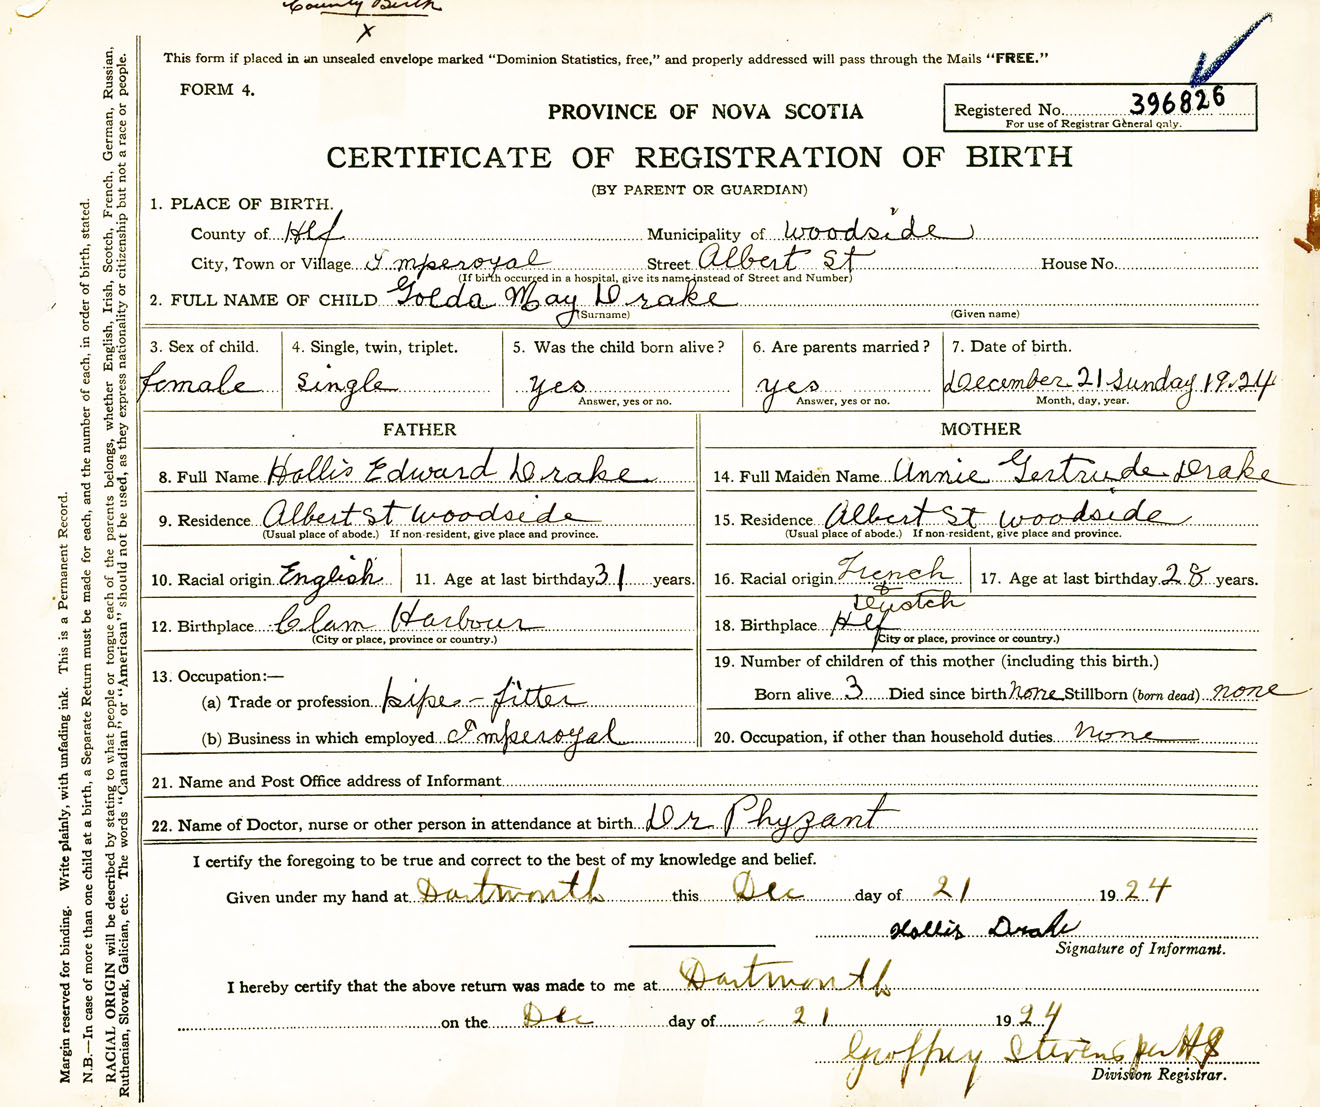 County Birth
X
This form if placed in an unsealed envelope marked "Dominion Statistics, free," and properly addressed will pass through the Mails "FREE."
FORM 4.
PROVINCE OF NOVA SCOTIA
Registered No. 396826
For use of Registrar General only.
CERTIFICATE OF REGISTRATION OF BIRTH
(BY PARENT OR GUARDIAN)
1. PLACE OF BIRTH.
County of Hlf Municipality of Woodside
City, Town or Village Imperoyal Street Albert St House No.
(If birth occurred in a hospital, give its name instead of Street and Number)
2. FULL NAME OF CHILD Golda May Drake
(Surname) (Given name)
3. Sex of child. 4. Single, twin, triplet. 5. Was the child born alive? 6. Are parents married? 7. Date of birth.
female single yes yes December 21 Sunday 1924
Answer, yes or no. Answer, yes or no. Month, day, year.
FATHER MOTHER
8. Full Name Hollis Edward Drake 14. Full Maiden Name Annie Gertrude Drake
9. Residence Albert St Woodside 15. Residence Albert St Woodside
(Usual place of abode.) If non-resident, give place and province. (Usual place of abode.) If non-resident, give place and province.
10. Racial origin English 11. Age at last birthday 31 years. 16. Racial origin French & Dustch 17. Age at last birthday 28 years.
12. Birthplace Clam Harbour 18. Birthplace Hlf
(City or place, province or country.) (City or place, province or country.)
13. Occupation:— 19. Number of children of this mother (including this birth.)
(a) Trade or profession pipe-fitter Born alive 3 Died since birth None Stillborn (born dead) none
(b) Business in which employed Imperoyal 20. Occupation, if other than household duties None
21. Name and Post Office address of Informant
22. Name of Doctor, nurse or other person in attendance at birth Dr Phyzant
I certify the foregoing to be true and correct to the best of my knowledge and belief.
Given under my hand at Dartmouth this Dec day of 21 1924
Hollis Drake
Signature of Informant.
I hereby certify that the above return was made to me at Dartmouth
on the Dec day of 21 1924
Geoffrey Stevens per HS
Division Registrar.
Margin reserved for binding. Write plainly, with unfading ink. This is a Permanent Record.
N.B.—In case of more than one child at a birth, a Separate Return must be made for each, and the number of each, in order of birth, stated.
RACIAL ORIGIN will be described by stating to what people or tongue each of the parents belongs, whether English, Irish, Scotch, French, German, Russian,
Ruthenian, Slovak, Galician, etc. The words "Canadian" or "American" should not be used, as they express nationality or citizenship but not a race or people.